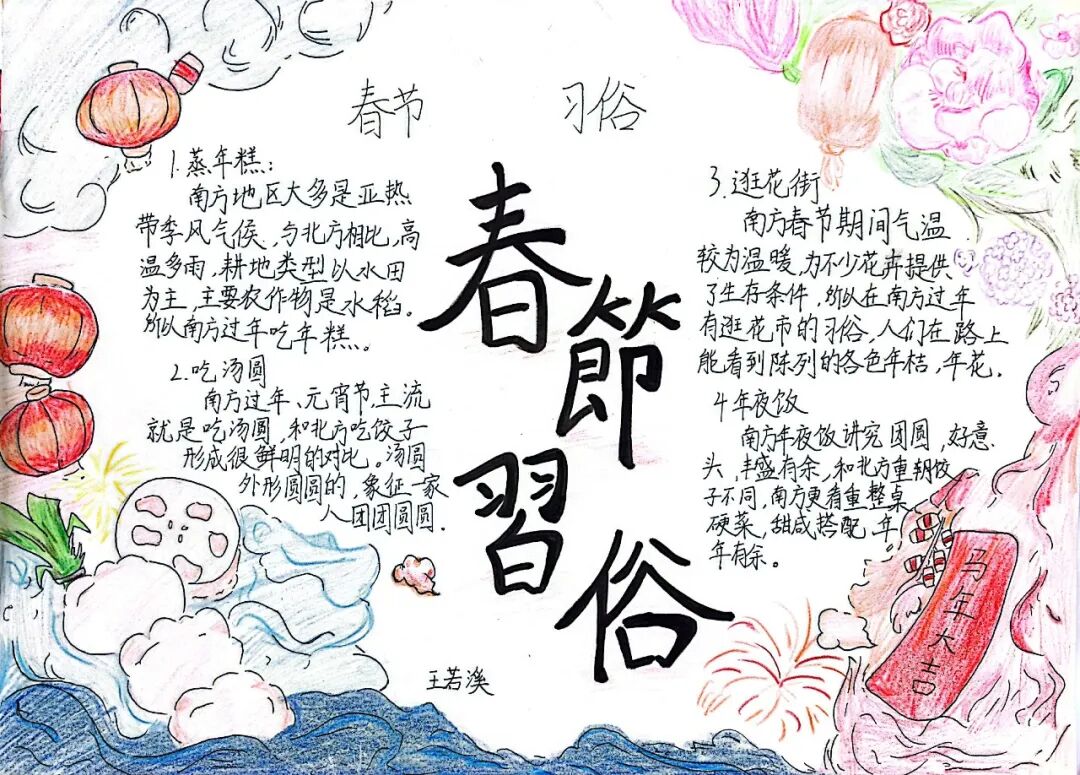 春节 习俗
春節習俗
1.蒸年糕：
南方地区大多是亚热
带季风气候，与北方相比，高
温多雨，耕地类型以水田
为主，主要农作物是水稻。
所以南方过年吃年糕。
2.吃汤圆
南方过年、元宵节主流
就是吃汤圆，和北方吃饺子
形成很鲜明的对比。汤圆
外形圆圆的，象征一家
人团团圆圆.
3.逛花街
南方春节期间气温
较为温暖，为不少花卉提供
了生存条件，所以在南方过年
有逛花市的习俗，人们在路上
能看到陈列的各色年桔，年花.
4年夜饭
南方年夜饭讲究团圆，好意
头，丰盛有余，和北方重朝饺
子不同，南方更看重整桌
硬菜，甜咸搭配，年
年有余。
马年大吉
王若溪